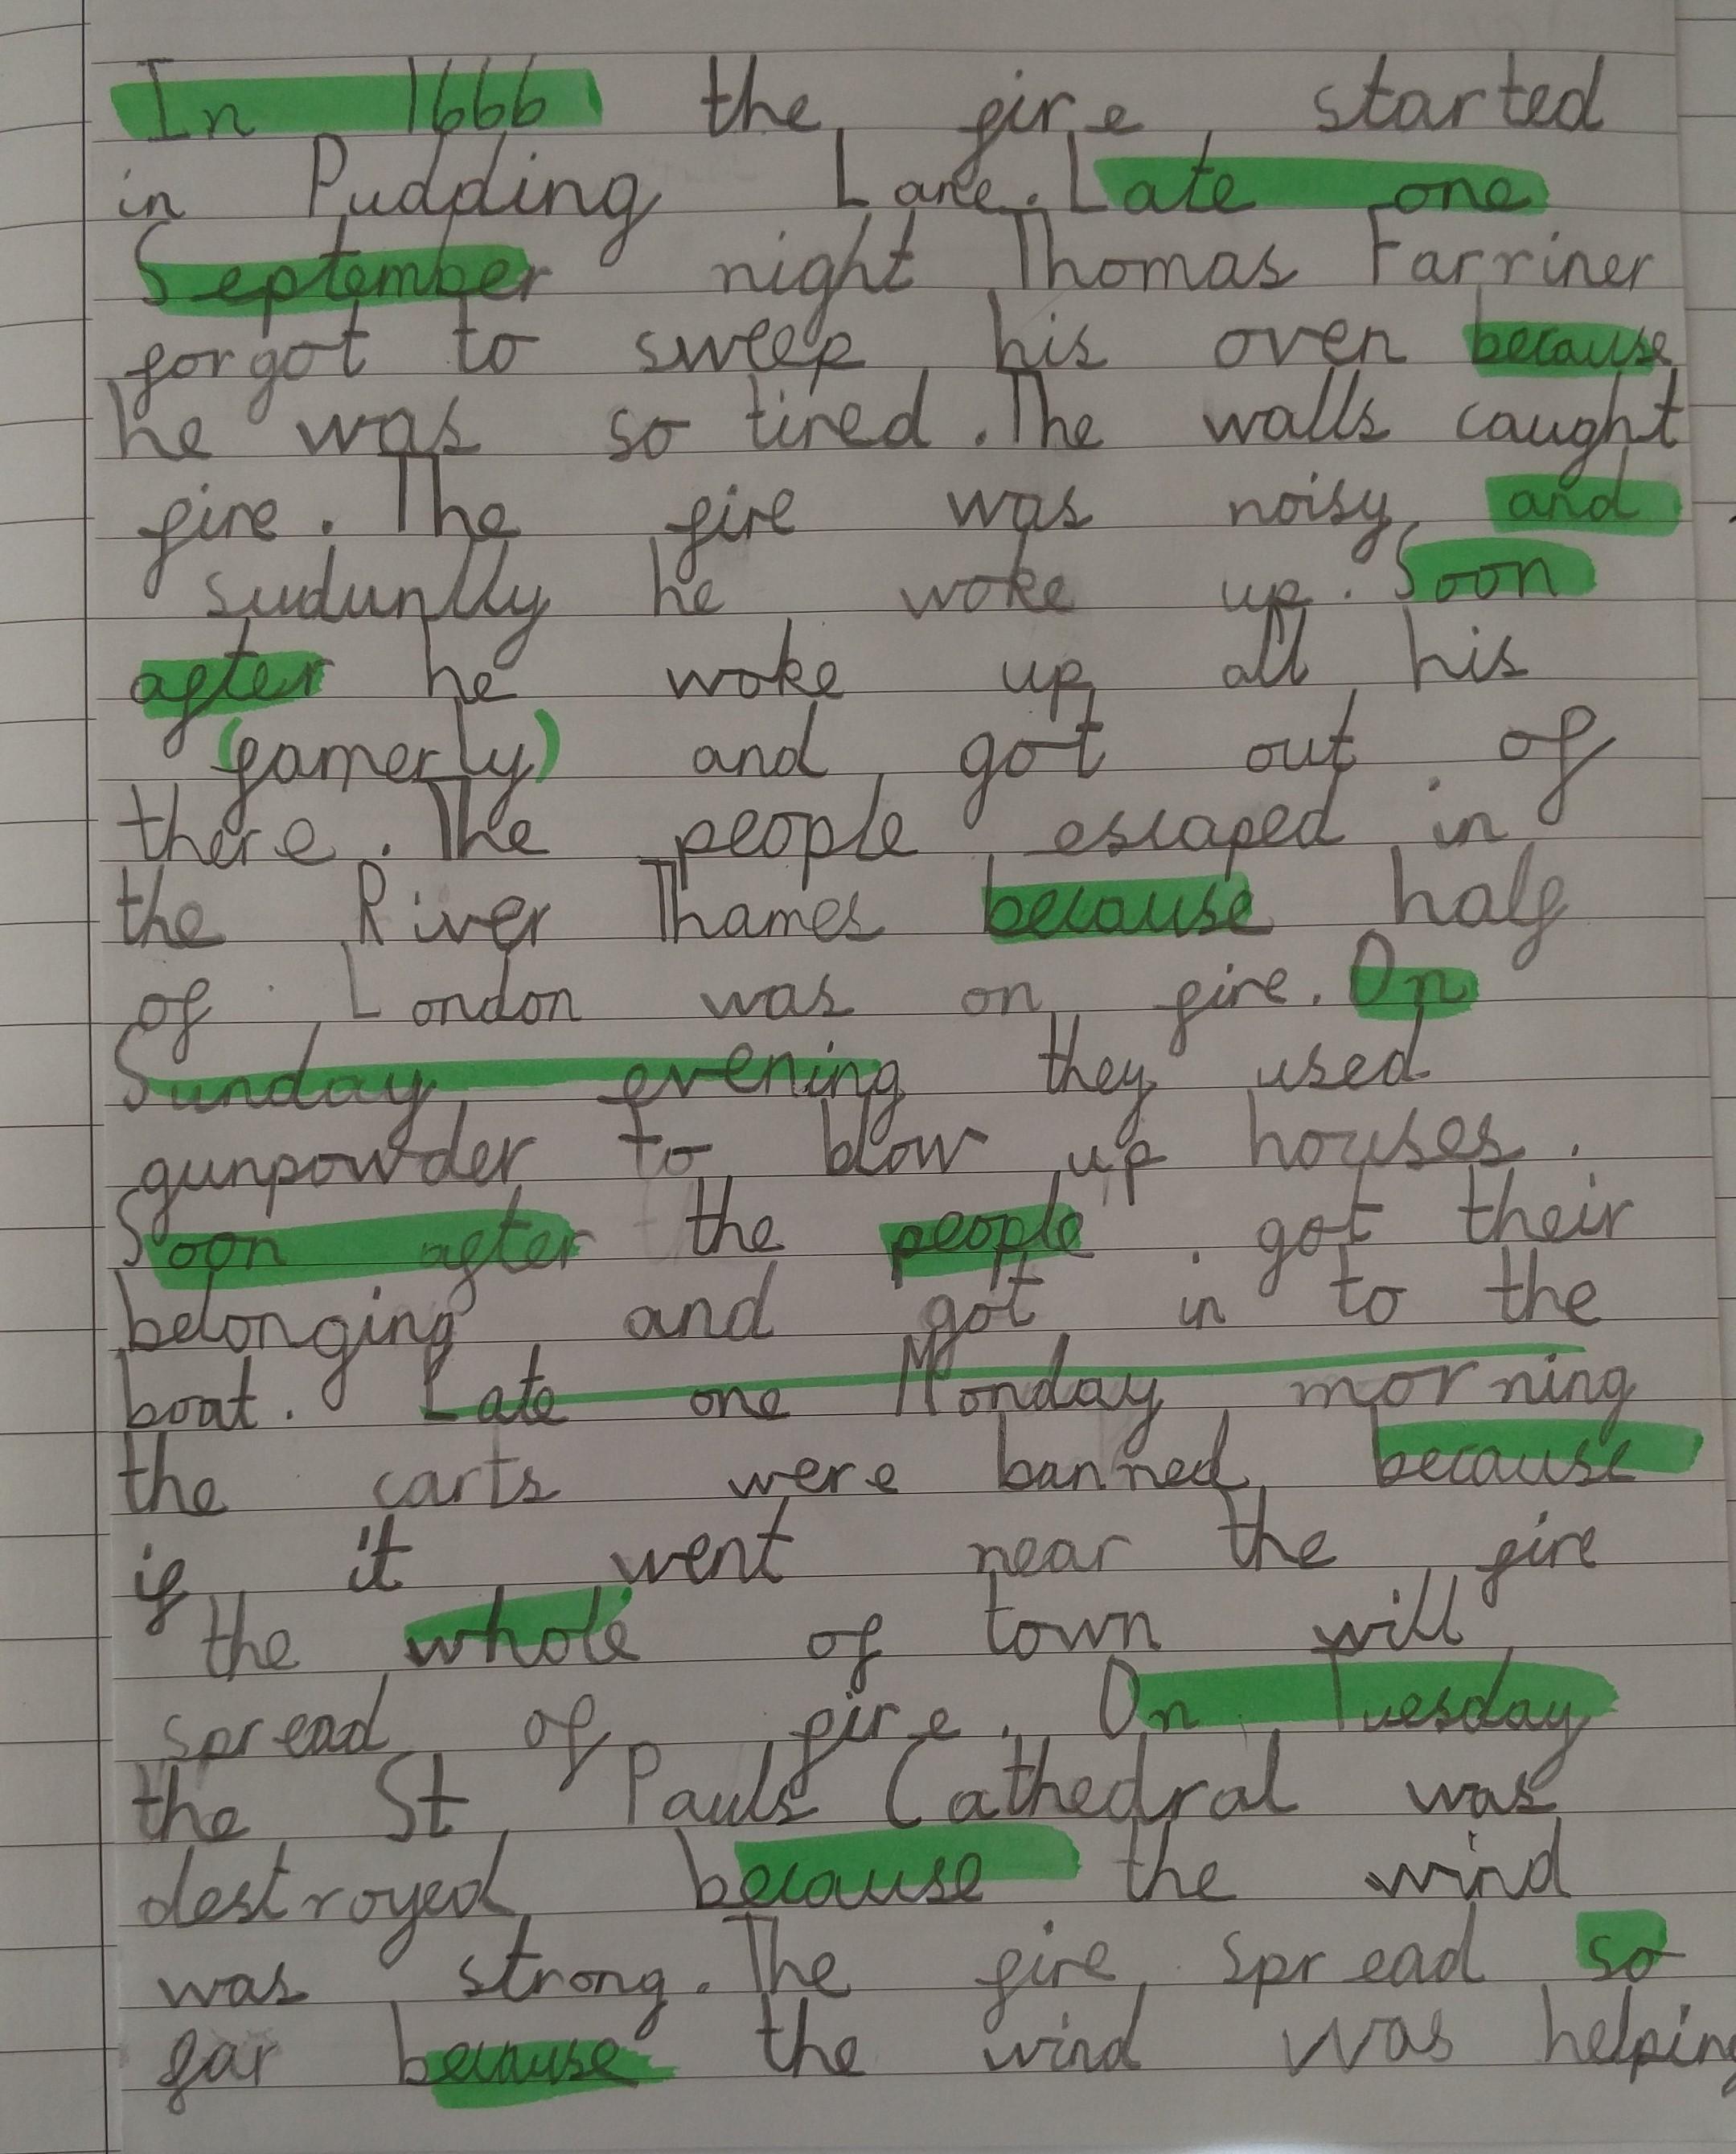 In 1666 the fire started
in Pudding Lane. Late one
September night Thomas Farriner
forgot to sweep his oven because
he was so tired. The walls caught
fire. The fire was noisy and
sudunlly he woke up. Soon
after he woke up all his
(famerly) and got out of
there. The people escaped in
the River Thames because half
of London was on fire. On
Sunday evening they used
gunpowder to blow up houses.
Soon after the people got their
belonging and got in to the
boat. Late one Monday morning
the carts were banned because
if it went near the fire
the whole of town will
spread of fire. On Tuesday
the St Pauls Cathedral was
destroyed because the wind
was strong. The fire spread so
far because the wind was helping